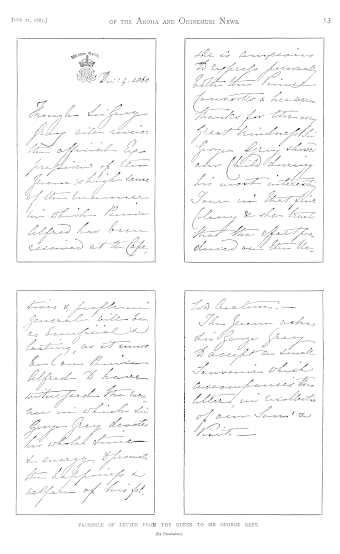 JUNE 21, 1887.]
OF THE AROHA AND OHINEMURI NEWS.
13
Windsor Castle.
Dec: 4. 1860.
Though Sir George
Grey will receive
the official Ex-
pression of the
Queen's high sense
of the manner
in which Prince
Alfred has been
received at the Cape,
she is anxious
to express personally
both the Prince
Consort's & her warm
thanks for the very
great kindness Sir
George Grey shewed
our Child during
his most interesting
Tour in that fine
Colony & she trusts
that the effect pro-
duced on the Na-
tives & people in
general will be
as beneficial &
lasting, as it must
Prince
Alfred to have
witnessed the man-
ner in which Sir
George Grey devotes
his whole time
& energy to promote
the happiness &
welfare of his fel-
low Creatures.—
The Queen asks
Sir George Grey
to accept a small
Souvenir which
accompanies this
letter, in recollection
of our Son's
Visit.—
FACSIMILE OF LETTER FROM THE QUEEN TO SIR GEORGE GREY.
(By Permission.)